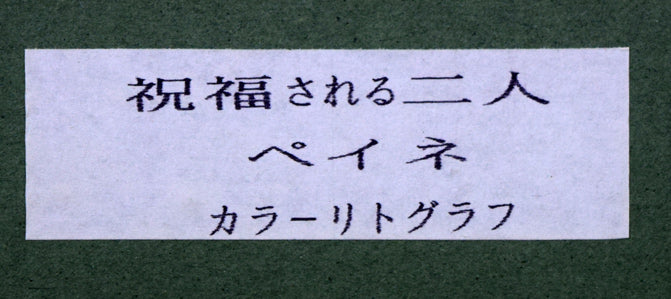 祝福される二人
ペイネ
カラーリトグラフ